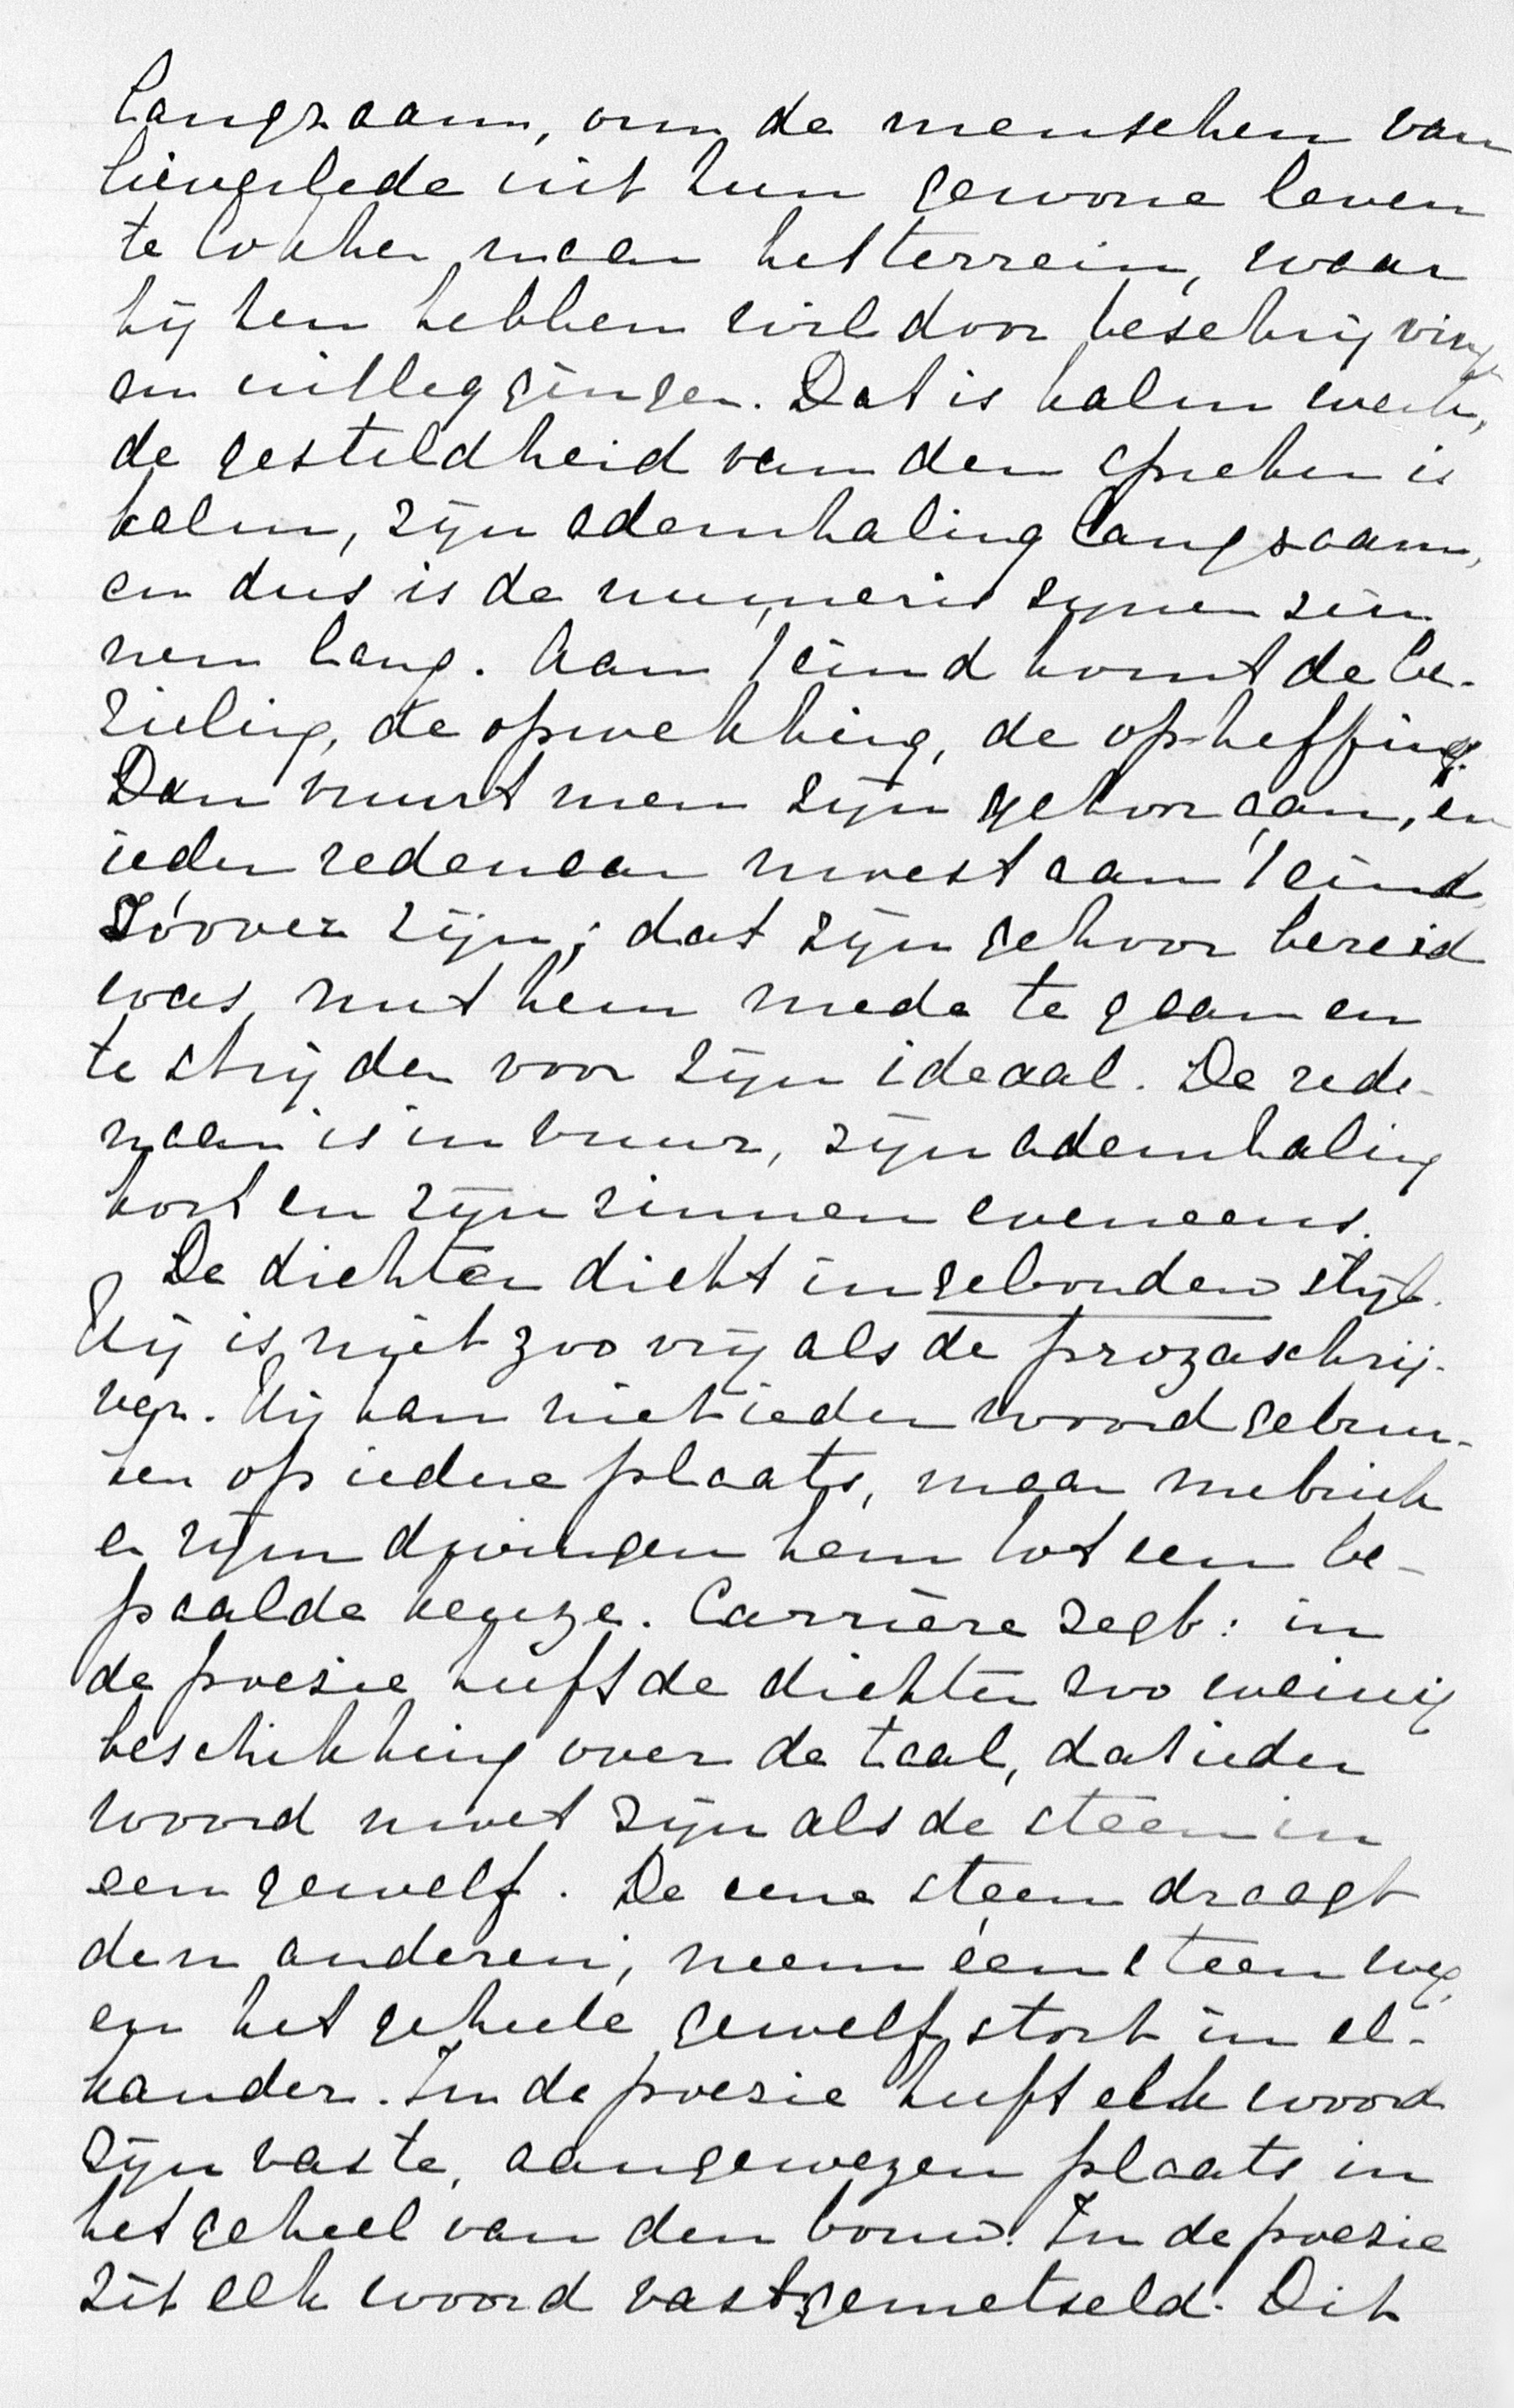 langzaam, om de menschen van
lieverlede uit hun gewone leven
te lokken naar het terrein, waar
hij hen hebben wil door beschrijving
en uitleggingen. Dat is kalm werk,
de gesteldheid van den spreker is
kalm, zijn ademhaling langzaam,
en dus is de numerus zijner zin
nen lang. Aan 't eind komt de be-
zieling, de opwekking, de opheffing.
Dan vuurt men zijn gehoor aan, en
ieder redenaar moest aan 't eind
zóóver zijn; dat zijn gehoor bereid
was, met hem mede te gaan en
te strijden voor zijn ideaal. De rede-
naar is in vuur, zijn ademhaling
kort en zijn zinnen eveneens.
De dichter dicht in gebonden stijl.
Hij is niet zoo vrij als de prozaschrij-
ver. Hij kan niet ieder woord gebrui-
ken op iedere plaats, maar metriek
en rijm dwingen hem tot een be-
paalde keuze. Carrière zegt: in
de poesie heeft de dichter zoo weinig
beschikking over de taal, dat ieder
woord moet zijn als de steen in
een gewelf. De eene steen draagt
den anderen; neem één steen weg,
en het geheele gewelf stort in el-
kander. In de poesie heeft elk woord
zijn vaste, aangewezen plaats in
het geheel van den bouw. In de poesie
zit elk woord vastgemetseld. Dit